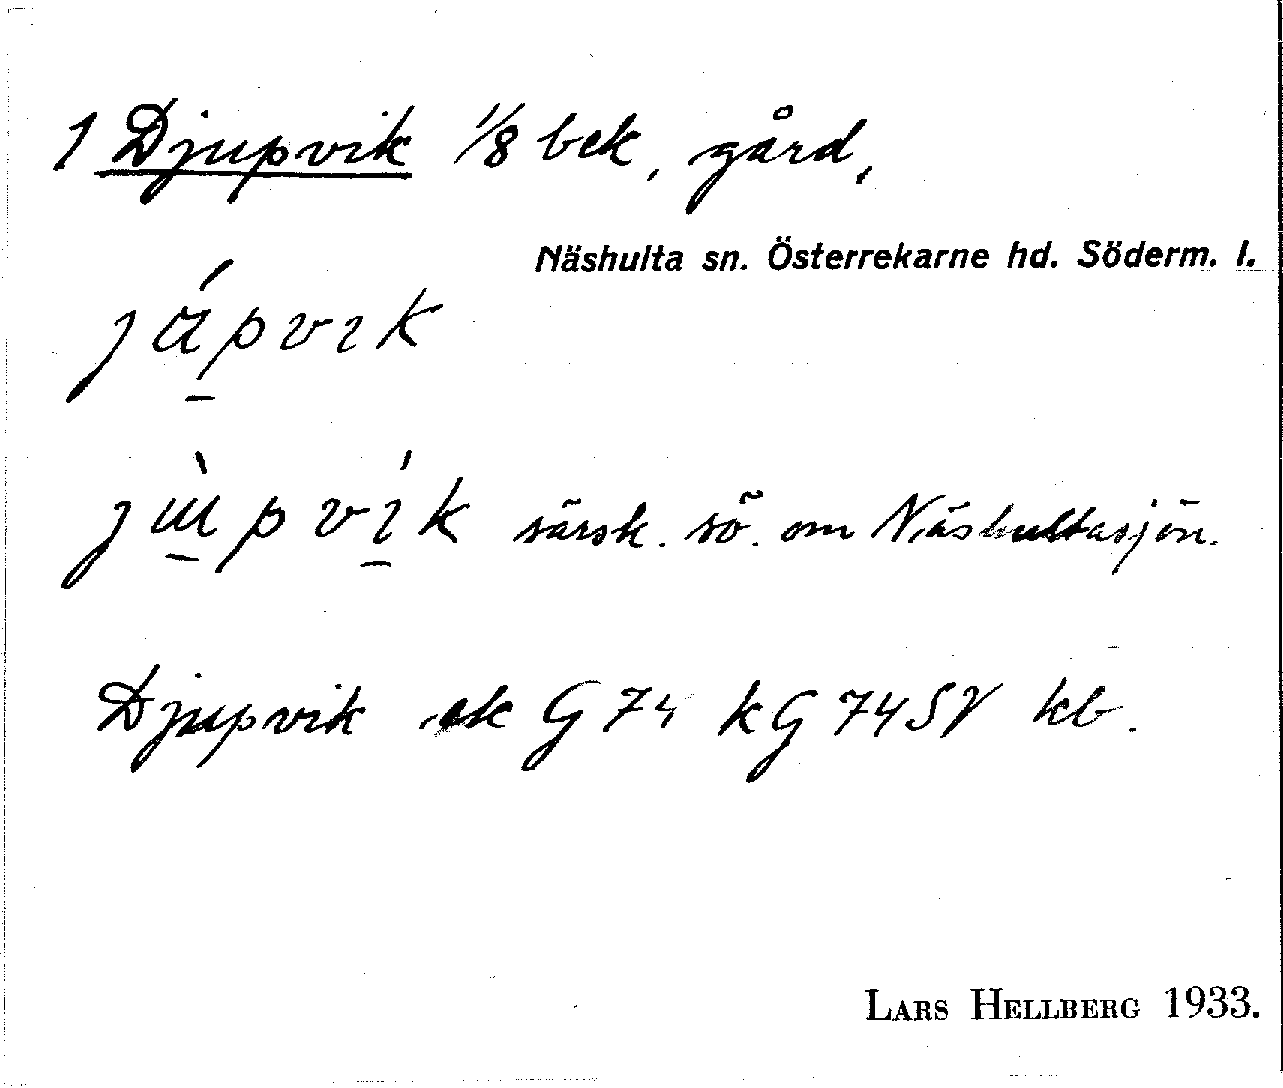 1 Djupvik 1/8 bek, gård,
Näshulta sn. Österrekarne hd. Söderm. l.
särsk. sö. om Näshultasjön.
Djupvik ek G 74 kG 74SV kb.
LARS HELLBERG 1933.